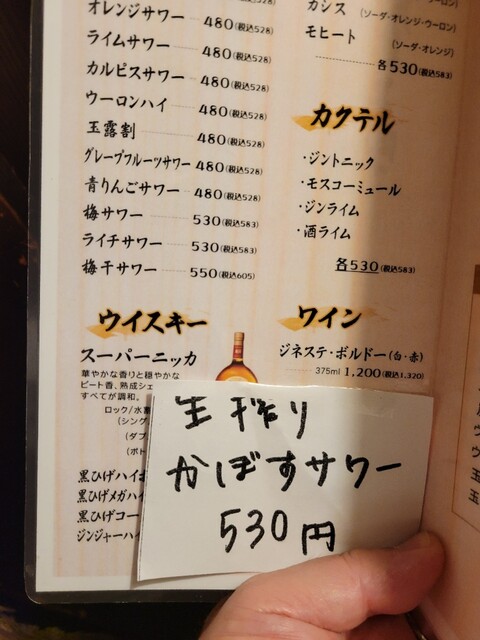 オレンジサワー 480(税込528)
ライムサワー 480(税込528)
カルピスサワー 480(税込528)
ウーロンハイ 480(税込528)
玉露割 480(税込528)
グレープフルーツサワー 480(税込528)
青りんごサワー 480(税込528)
梅サワー 530(税込583)
ライチサワー 530(税込583)
梅干サワー 550(税込605)
ウイスキー
スーパーニッカ
華やかな香りと穏やかな
ピート香、熟成シェ
すべてが調和。
ロック/水割
(シング
(ダブ
(ボト
黒ひげハイボ
黒ひげメガハイ
黒ひげコー
ジンジャーハイ
カシス
(ソーダ・オレンジ・ウーロン)
モヒート
(ソーダ・オレンジ)
各530(税込583)
カクテル
・ジントニック
・モスコーミュール
・ジンライム
・酒ライム
各530(税込583)
ワイン
ジネステ・ボルドー(白・赤)
375ml 1,200(税込1,320)
生搾り
かぼすサワー
530円